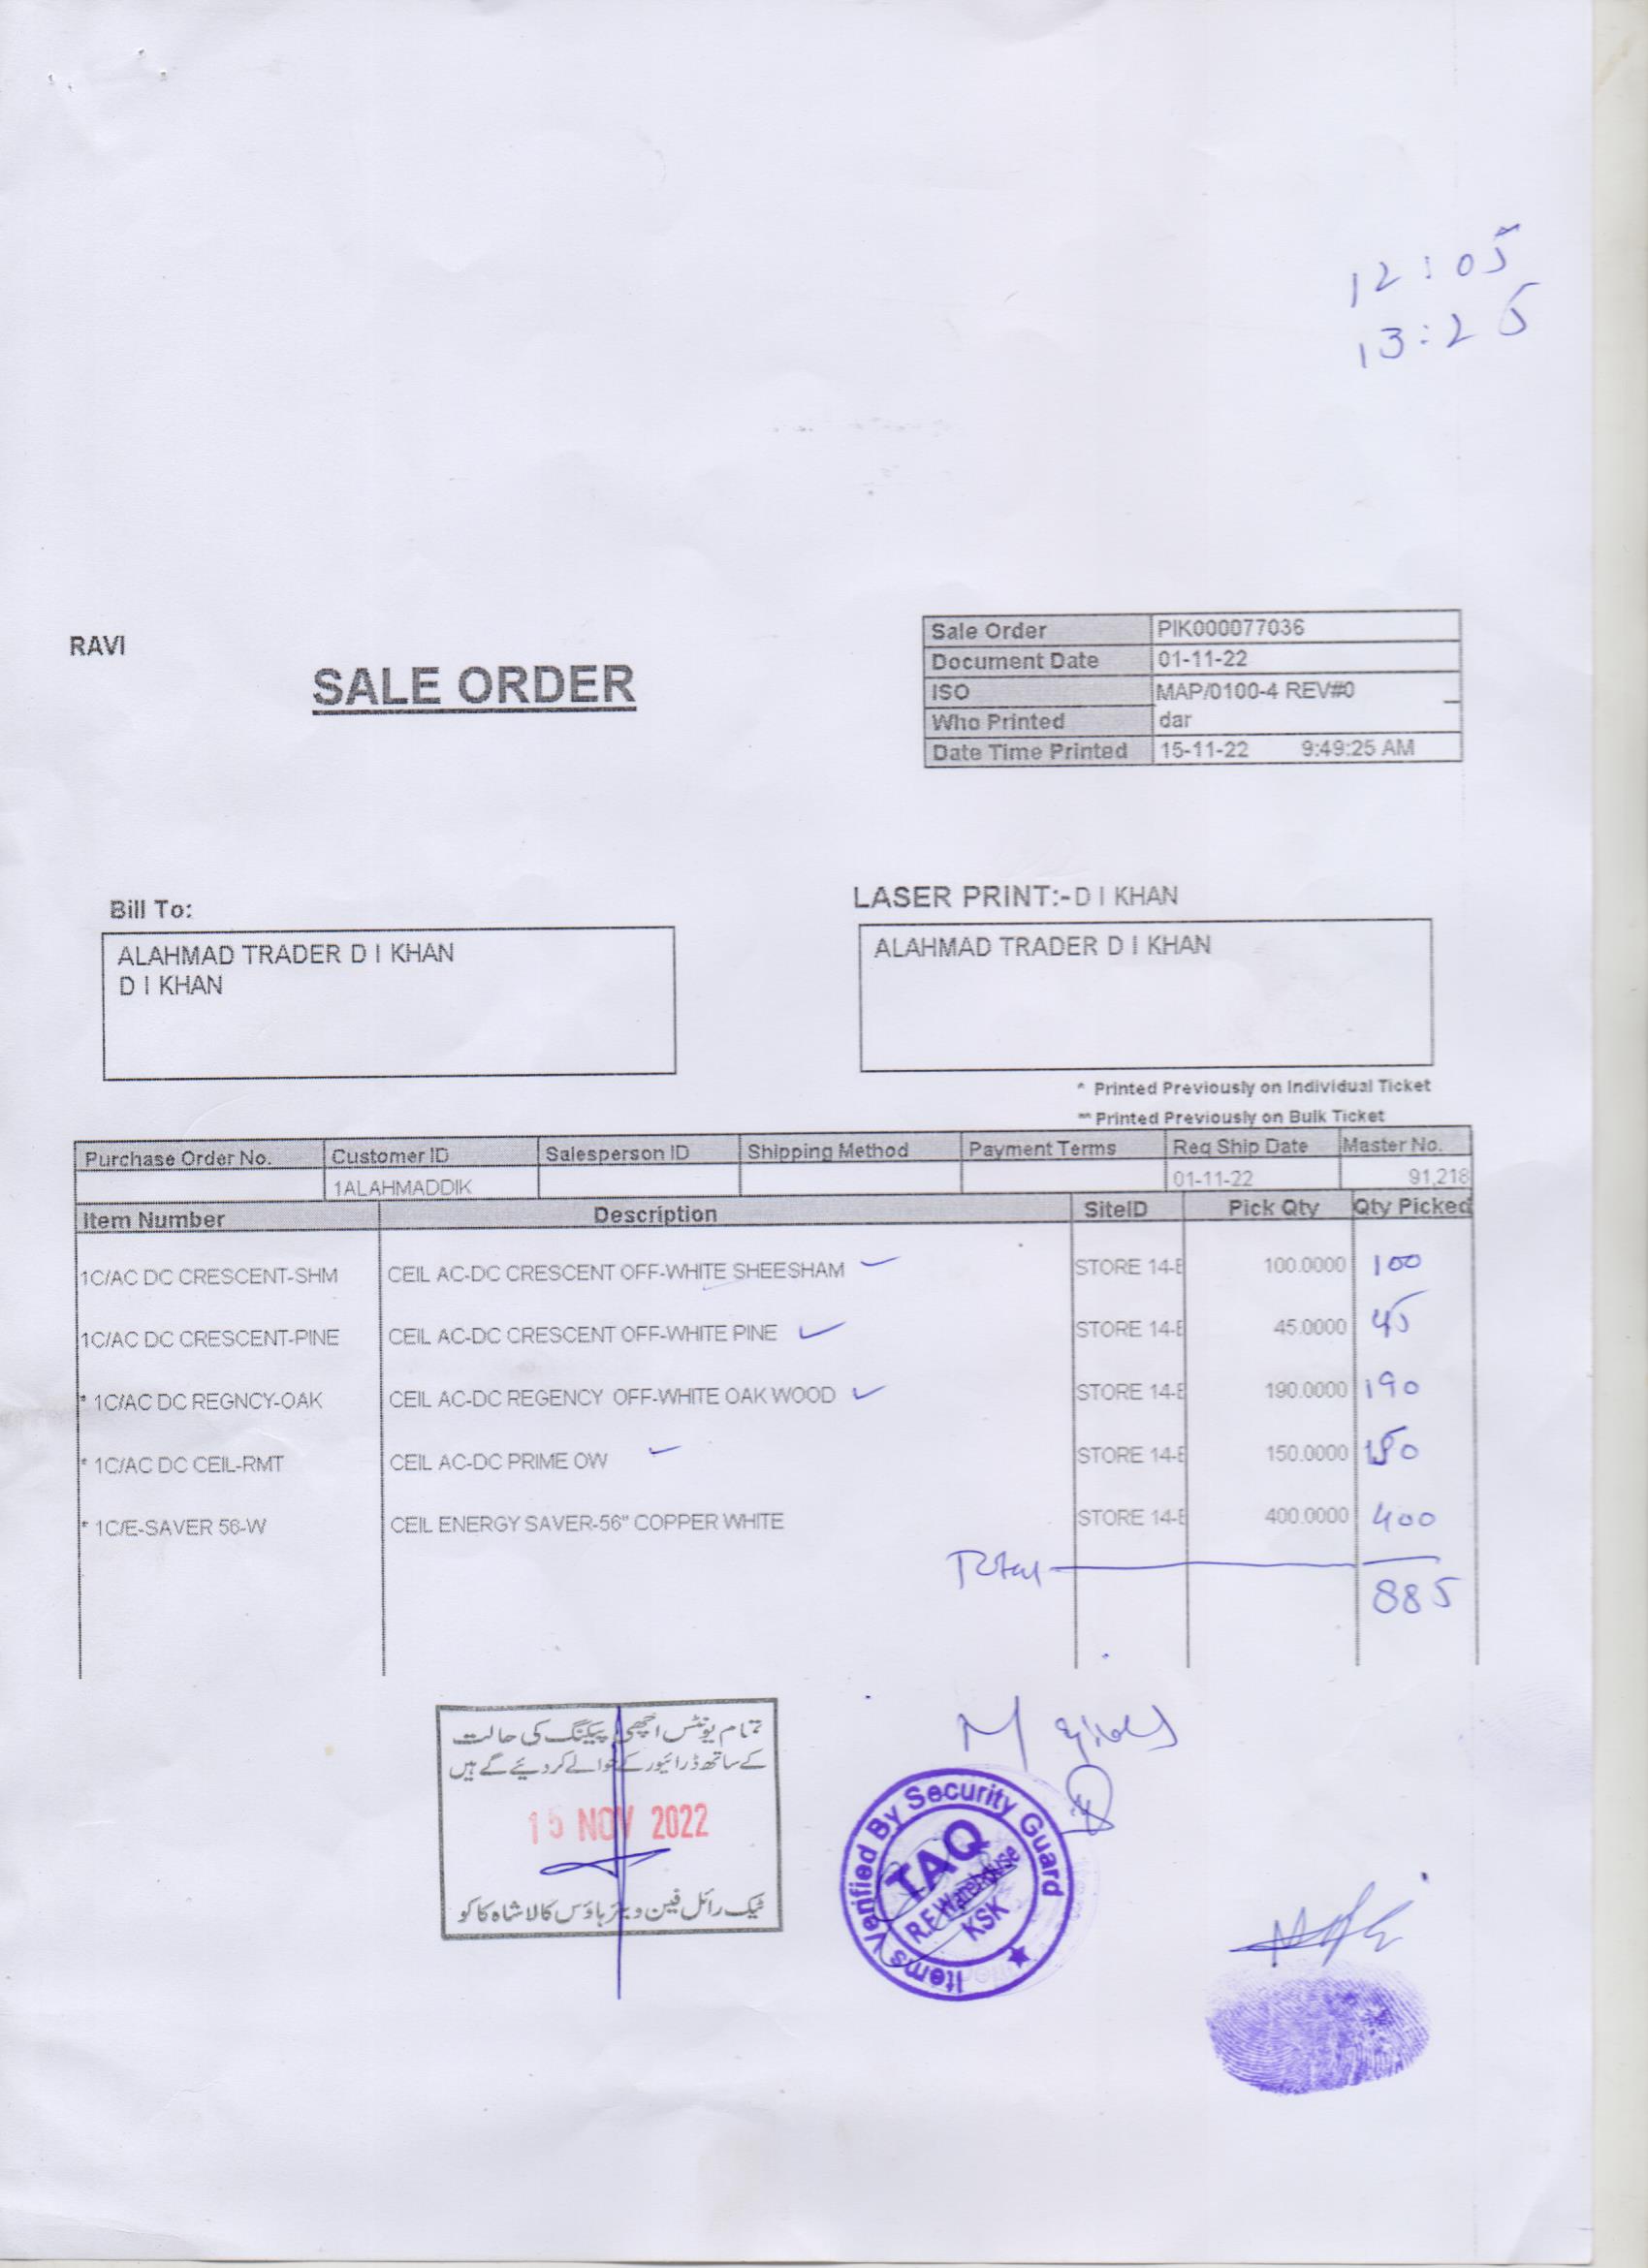 12:05
13:25
RAVI
SALE ORDER
Sale Order PIK000077036
Document Date 01-11-22
ISO MAP/0100-4 REV#0
Who Printed dar
Date Time Printed 15-11-22 9:49:25 AM
Bill To:
ALAHMAD TRADER D I KHAN
D I KHAN
LASER PRINT:- D I KHAN
ALAHMAD TRADER D I KHAN
* Printed Previously on Individual Ticket
** Printed Previously on Bulk Ticket
Purchase Order No. Customer ID Salesperson ID Shipping Method Payment Terms Req Ship Date Master No.
1ALAHMADDIK 01-11-22 91,218
Item Number Description SiteID Pick Qty Qty Picked
1C/AC DC CRESCENT-SHM CEIL AC-DC CRESCENT OFF-WHITE SHEESHAM STORE 14-E 100.0000 100
1C/AC DC CRESCENT-PINE CEIL AC-DC CRESCENT OFF-WHITE PINE STORE 14-E 45.0000 45
* 1C/AC DC REGNCY-OAK CEIL AC-DC REGENCY OFF-WHITE OAK WOOD STORE 14-E 190.0000 190
* 1C/AC DC CEIL-RMT CEIL AC-DC PRIME OW STORE 14-E 150.0000 150
* 1C/E-SAVER 56-W CEIL ENERGY SAVER-56" COPPER WHITE STORE 14-E 400.0000 400
Total 885
تمام یونٹس اچھی پیکنگ کی حالت
کے ساتھ ڈرائیور کے حوالے کر دیئے گئے ہیں
15 NOV 2022
ٹیک رائل فین ویئر ہاؤس کالا شاہ کاکو
Items Verified By Security Guard
TAQ
R.F. Warehouse
KSK